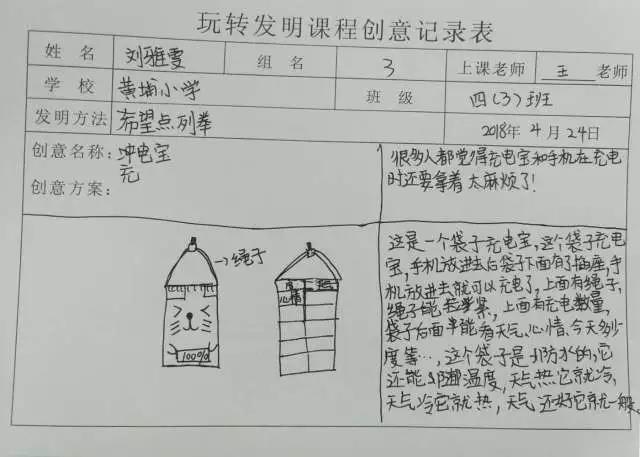 玩转发明课程创意记录表
姓名 刘雅雯 组名 3 上课老师 王 老师
学校 黄埔小学 班级 四(3)班
发明方法 希望点列举 2018年4月24日
创意名称：冲电宝
充
创意方案：
很多人都觉得充电宝和手机在充电
时还要拿着太麻烦了！
→绳子
100%
心情
这是一个袋子充电宝，这个袋子充电
宝，手机放进去后袋子下面有了插座，手
机放进去就可以充电了，上面有绳子，
绳子能拉紧，上面有充电数量，
袋子后面能看天气、心情、今天多少
度等…，这个袋子是防水的，它
还能调温度，天气热它就冷，
天气冷它就热，天气还好它就一般。